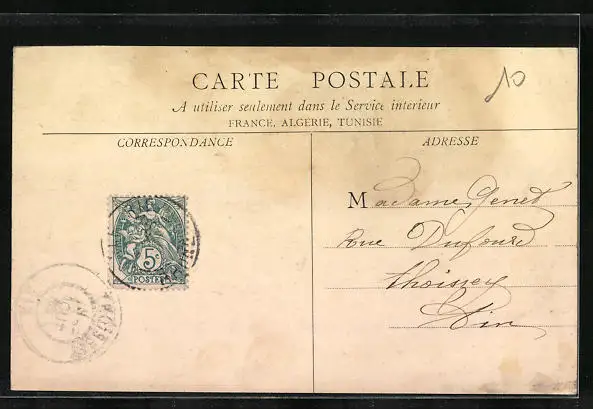 CARTE POSTALE
A utiliser seulement dans le Service intérieur
FRANCE, ALGÉRIE, TUNISIE
CORRESPONDANCE
ADRESSE
10
Madame Genet
Rue Dufour
Thoissey
Ain
5c
POSTES